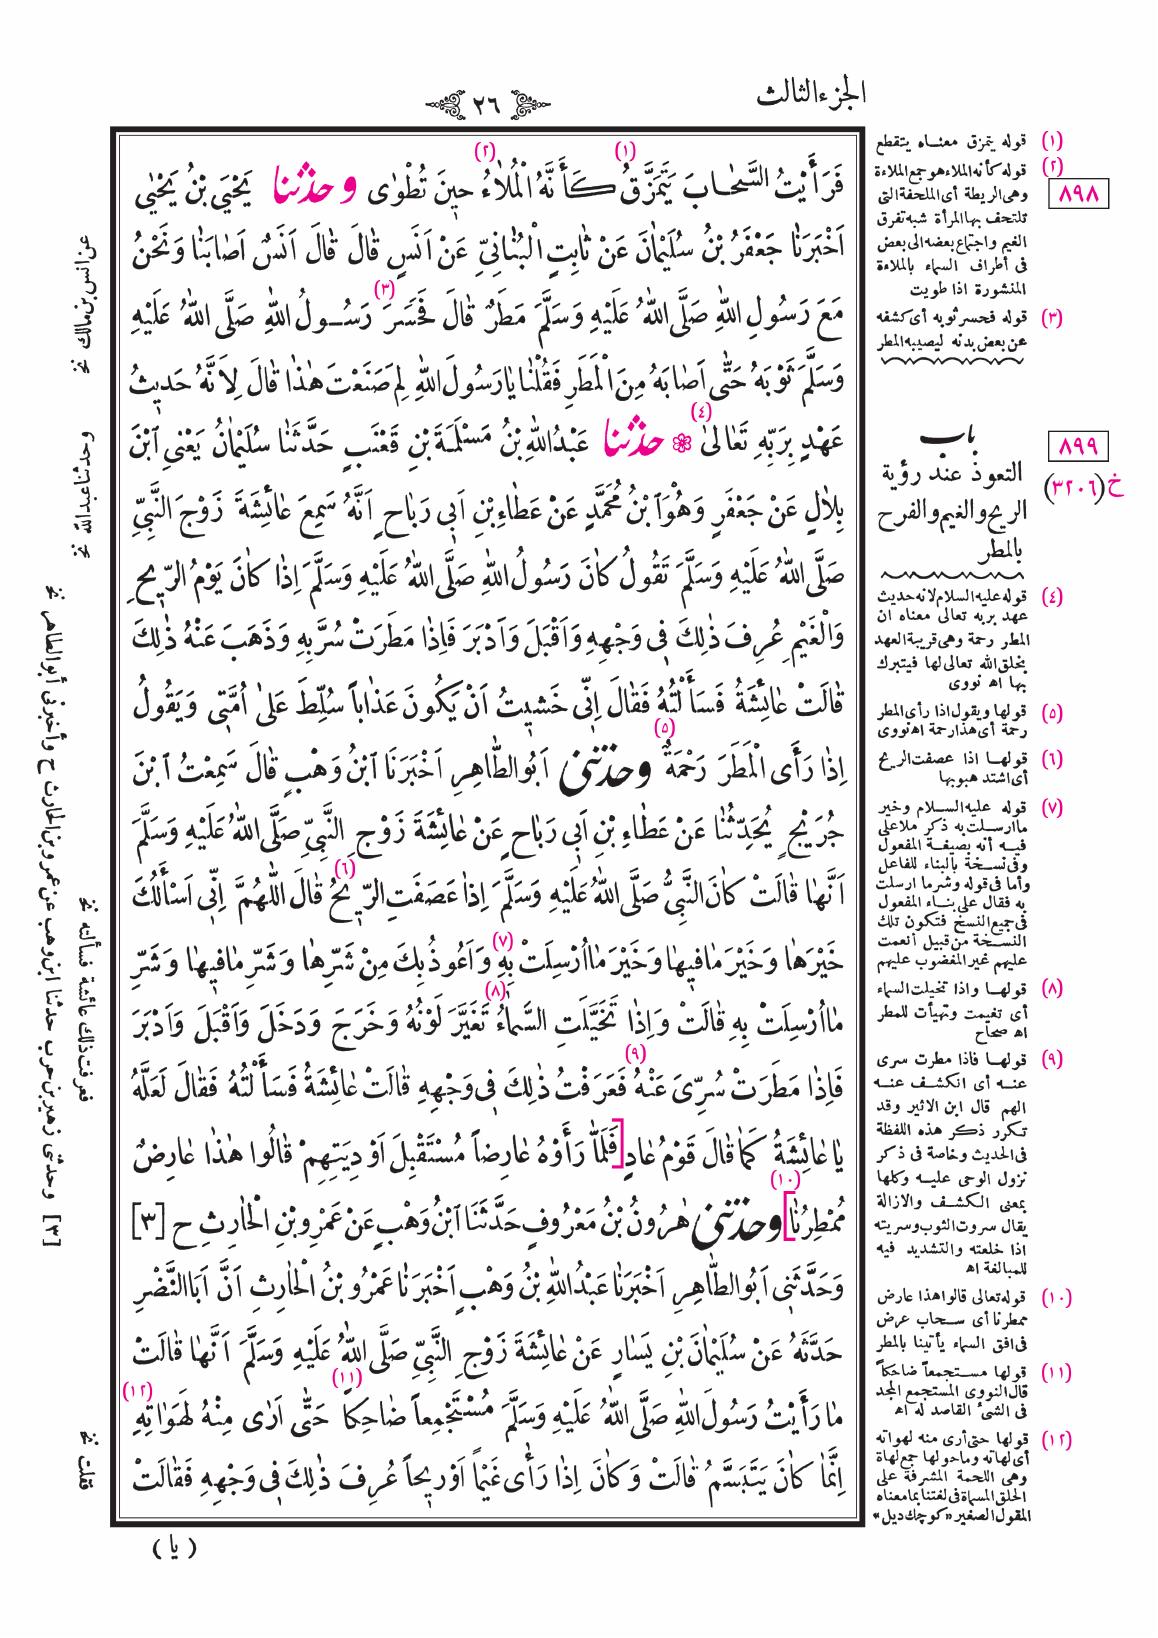 الجزء الثالث
٢٦
فَرَأَيْتُ السَّحَابَ يَتَمَزَّقُ (١) كَأَنَّهُ الْمُلَاءُ (٢) حِينَ تُطْوَى وحدثنا يَحْيَى بْنُ يَحْيَى
اَخْبَرَنَا جَعْفَرُ بْنُ سُلَيْمَانَ عَنْ ثَابِتٍ الْبُنَانِيِّ عَنْ اَنَسٍ قَالَ قَالَ اَنَسٌ اَصَابَنَا وَنَحْنُ
مَعَ رَسُولِ اللهِ صَلَّى اللهُ عَلَيْهِ وَسَلَّمَ مَطَرٌ قَالَ فَحَسَرَ (٣) رَسُولُ اللهِ صَلَّى اللهُ عَلَيْهِ
وَسَلَّمَ ثَوْبَهُ حَتَّى اَصَابَهُ مِنَ الْمَطَرِ فَقُلْنَا يَا رَسُولَ اللهِ لِمَ صَنَعْتَ هٰذَا قَالَ لِاَنَّهُ حَدِيثُ
عَهْدٍ بِرَبِّهِ تَعَالٰى (٤) حدثنا عَبْدُ اللهِ بْنُ مَسْلَمَةَ بْنِ قَعْنَبٍ حَدَّثَنَا سُلَيْمَانُ يَعْنِى ابْنَ
بِلَالٍ عَنْ جَعْفَرٍ وَهُوَ ابْنُ مُحَمَّدٍ عَنْ عَطَاءِ بْنِ اَبِى رَبَاحٍ اَنَّهُ سَمِعَ عَائِشَةَ زَوْجَ النَّبِيِّ
صَلَّى اللهُ عَلَيْهِ وَسَلَّمَ تَقُولُ كَانَ رَسُولُ اللهِ صَلَّى اللهُ عَلَيْهِ وَسَلَّمَ اِذَا كَانَ يَوْمُ الرِّيحِ
وَالْغَيْمِ عُرِفَ ذٰلِكَ فِى وَجْهِهِ وَاَقْبَلَ وَاَدْبَرَ فَاِذَا مَطَرَتْ سُرَّ بِهِ وَذَهَبَ عَنْهُ ذٰلِكَ
قَالَتْ عَائِشَةُ فَسَأَلْتُهُ فَقَالَ اِنِّى خَشِيتُ اَنْ يَكُونَ عَذَاباً سُلِّطَ عَلَى اُمَّتِى وَيَقُولُ
اِذَا رَأَى الْمَطَرَ رَحْمَةٌ (٥) وحدثنى اَبُو الطَّاهِرِ اَخْبَرَنَا ابْنُ وَهْبٍ قَالَ سَمِعْتُ ابْنَ
جُرَيْجٍ يُحَدِّثُنَا عَنْ عَطَاءِ بْنِ اَبِى رَبَاحٍ عَنْ عَائِشَةَ زَوْجِ النَّبِيِّ صَلَّى اللهُ عَلَيْهِ وَسَلَّمَ
اَنَّهَا قَالَتْ كَانَ النَّبِيُّ صَلَّى اللهُ عَلَيْهِ وَسَلَّمَ اِذَا عَصَفَتِ الرِّيحُ (٦) قَالَ اللّٰهُمَّ اِنِّى اَسْأَلُكَ
خَيْرَهَا وَخَيْرَ مَا فِيهَا وَخَيْرَ مَا اُرْسِلَتْ بِهِ (٧) وَاَعُوذُ بِكَ مِنْ شَرِّهَا وَشَرِّ مَا فِيهَا وَشَرِّ
مَا اُرْسِلَتْ بِهِ قَالَتْ وَاِذَا تَخَيَّلَتِ السَّمَاءُ (٨) تَغَيَّرَ لَوْنُهُ وَخَرَجَ وَدَخَلَ وَاَقْبَلَ وَاَدْبَرَ
فَاِذَا مَطَرَتْ سُرِّىَ عَنْهُ (٩) فَعَرَفْتُ ذٰلِكَ فِى وَجْهِهِ قَالَتْ عَائِشَةُ فَسَأَلْتُهُ فَقَالَ لَعَلَّهُ
يَا عَائِشَةُ كَمَا قَالَ قَوْمُ عَادٍ [فَلَمَّا رَأَوْهُ عَارِضاً مُسْتَقْبِلَ اَوْدِيَتِهِمْ قَالُوا هٰذَا عَارِضٌ
مُمْطِرُنَا] (١٠) وحدثنى هٰرُونُ بْنُ مَعْرُوفٍ حَدَّثَنَا ابْنُ وَهْبٍ عَنْ عَمْرِو بْنِ الْحَارِثِ ح [٣]
وَحَدَّثَنِى اَبُو الطَّاهِرِ اَخْبَرَنَا عَبْدُ اللهِ بْنُ وَهْبٍ اَخْبَرَنَا عَمْرُو بْنُ الْحَارِثِ اَنَّ اَبَا النَّضْرِ
حَدَّثَهُ عَنْ سُلَيْمَانَ بْنِ يَسَارٍ عَنْ عَائِشَةَ زَوْجِ النَّبِيِّ صَلَّى اللهُ عَلَيْهِ وَسَلَّمَ اَنَّهَا قَالَتْ
مَا رَأَيْتُ رَسُولَ اللهِ صَلَّى اللهُ عَلَيْهِ وَسَلَّمَ مُسْتَجْمِعاً ضَاحِكاً (١١) حَتَّى اَرٰى مِنْهُ لَهَوَاتِهِ (١٢)
اِنَّمَا كَانَ يَتَبَسَّمُ قَالَتْ وَكَانَ اِذَا رَأَى غَيْماً اَوْ رِيحاً عُرِفَ ذٰلِكَ فِى وَجْهِهِ فَقَالَتْ
( يا )
(١) قوله يتمزق معناه يتقطع
(٢) قوله كأنه الملاء هو جمع الملاءة
٨٩٨
وهى الريطة أى الملحفة التى
تلتحف بها المرأة شبه تفرق
الغيم واجتماع بعضه الى بعض
فى أطراف السماء بالملاءة
المنشورة اذا طويت
(٣) قوله فحسر ثوبه أى كشفه
عن بعض بدنه ليصيبه المطر
٨٩٩
باب
التعوذ عند رؤية
خ (٣٢٠٦)
الريح والغيم والفرح
بالمطر
(٤) قوله عليه السلام لانه حديث
عهد بربه تعالى معناه ان
المطر رحمة وهى قريبة العهد
بخلق الله تعالى لها فيتبرك
بها اه نووى
(٥) قولها ويقول اذا رأى المطر
رحمة أى هذا رحمة اه نووى
(٦) قولها اذا عصفت الريح
أى اشتد هبوبها
(٧) قوله عليه السلام وخير
ما ارسلت به ذكر ملا على
فيه أنه بصيغة المفعول
وفى نسخة بالبناء للفاعل
وأما فى قوله وشر ما ارسلت
به فقال على بناء المفعول
فى جميع النسخ فتكون تلك
النسخة من قبيل أنعمت
عليهم غير المغضوب عليهم
(٨) قولها واذا تخيلت السماء
أى تغيمت وتهيأت للمطر
اه صحاح
(٩) قولها فاذا مطرت سرى
عنه أى انكشف عنه
الهم قال ابن الاثير وقد
تكرر ذكر هذه اللفظة
فى الحديث وخاصة فى ذكر
نزول الوحى عليه وكلها
بمعنى الكشف والازالة
يقال سروت الثوب وسريته
اذا خلعته والتشديد فيه
للمبالغة اه
(١٠) قوله تعالى قالوا هذا عارض
ممطرنا أى سحاب عرض
فى افق السماء يأتينا بالمطر
(١١) قولها مستجمعاً ضاحكاً
قال النووى المستجمع المجد
فى الشئ القاصد له اه
(١٢) قولها حتى أرى منه لهواته
أى لهاته وما حولها جمع لهاة
وهى اللحمة المشرفة على
الحلق المسماة فى لغتنا بما معناه
المقول الصغير «كوچك ديل»
عن انس بن مالك نخ
وحدثنا عبد الله نخ
فعرفت ذلك عائشة فسألته نخ
فقلت نخ
[٣] وحدثنى زهير بن حرب حدثنا ابن وهب عن عمرو بن الحارث ح وأخبرنى أبو الطاهر نخ